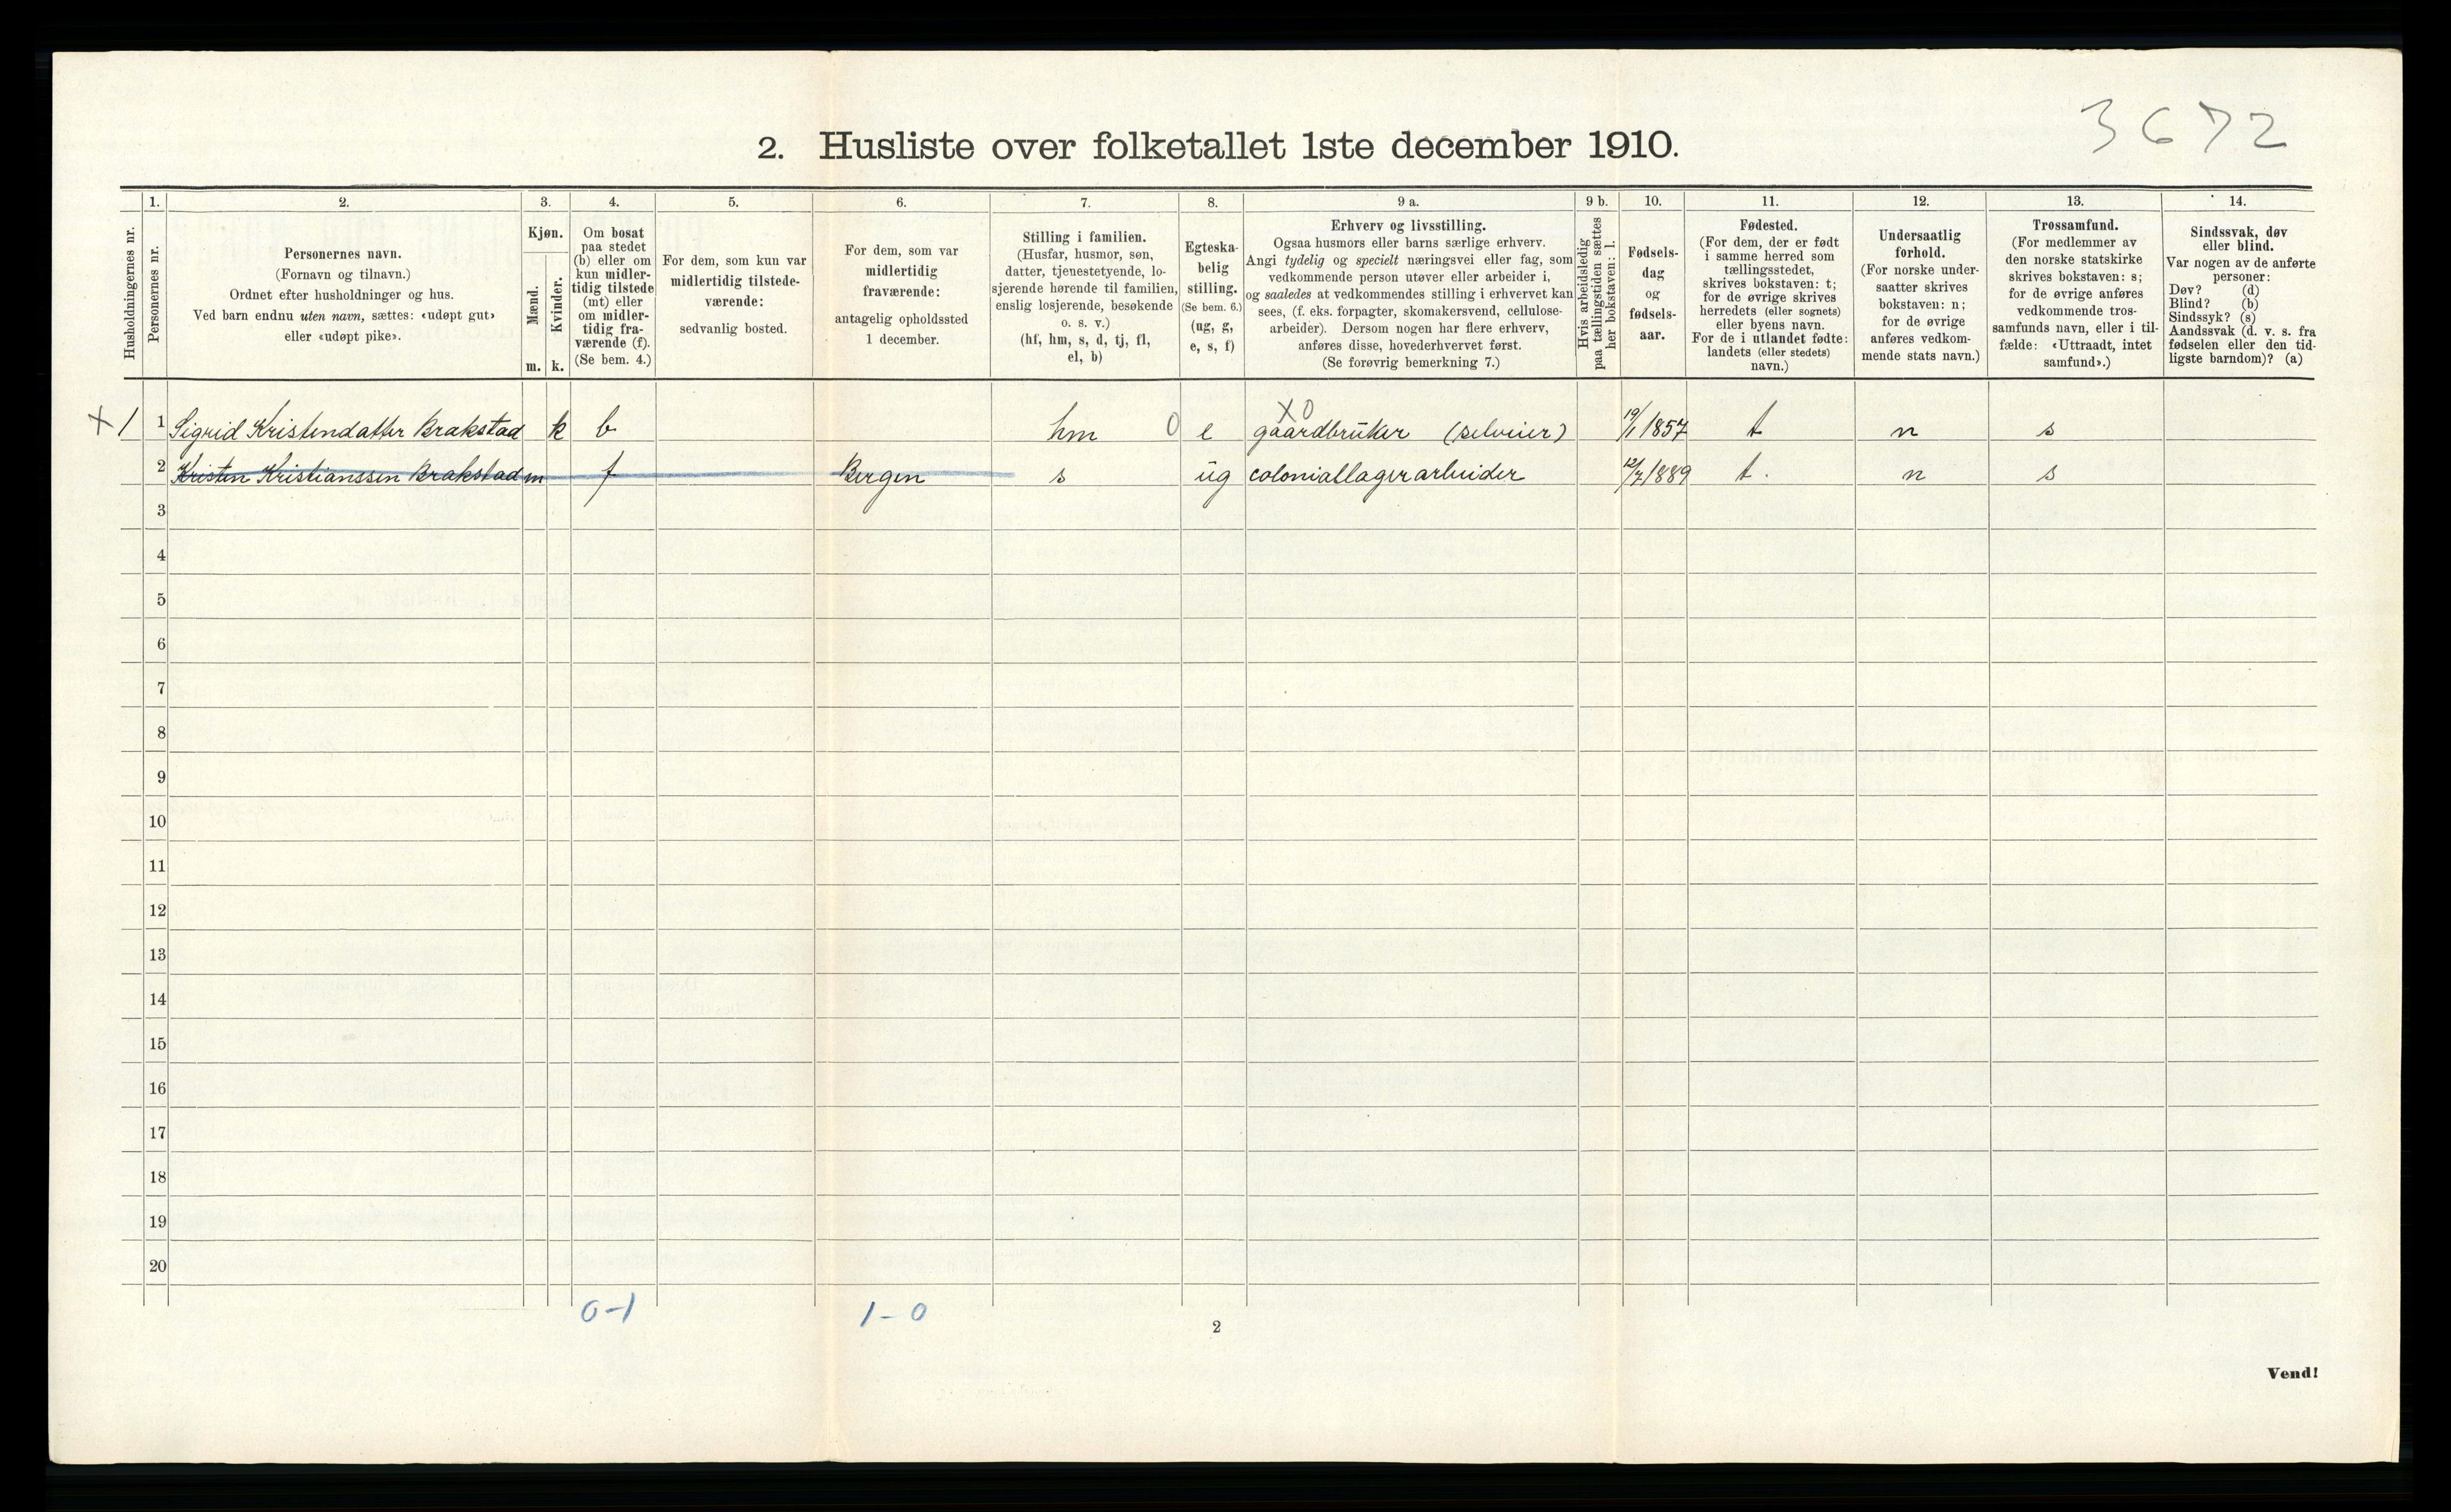 3672
2. Husliste over folketallet 1ste december 1910.
Husholdningernes nr.
1.
Personernes nr.
2.
Personernes navn.
(Fornavn og tilnavn.)
Ordnet efter husholdninger og hus.
Ved barn endnu uten navn, sættes: «udøpt gut»
eller «udøpt pike».
3.
Kjøn.
Mænd.
Kvinder.
m. k.
4.
Om bosat
paa stedet
(b) eller om
kun midler-
tidig tilstede
(mt) eller
om midler-
tidig fra-
værende (f).
(Se bem. 4.)
5.
For dem, som kun var
midlertidig tilstede-
værende:
sedvanlig bosted.
6.
For dem, som var
midlertidig
fraværende:
antagelig opholdssted
1 december.
7.
Stilling i familien.
(Husfar, husmor, søn,
datter, tjenestetyende, lo-
sjerende hørende til familien,
enslig losjerende, besøkende
o. s. v.)
(hf, hm, s, d, tj, fl,
el, b)
8.
Egteska-
belig
stilling.
(Se bem. 6.)
(ug, g,
e, s, f)
9 a.
Erhverv og livsstilling.
Ogsaa husmors eller barns særlige erhverv.
Angi tydelig og specielt næringsvei eller fag, som
vedkommende person utøver eller arbeider i,
og saaledes at vedkommendes stilling i erhvervet kan
sees, (f. eks. forpagter, skomakersvend, cellulose-
arbeider). Dersom nogen har flere erhverv,
anføres disse, hovederhvervet først.
(Se forøvrig bemerkning 7.)
9 b.
Hvis arbeidsledig
paa tællingstiden sættes
her bokstaven: l.
10.
Fødsels-
dag
og
fødsels-
aar.
11.
Fødested.
(For dem, der er født
i samme herred som
tællingsstedet,
skrives bokstaven: t;
for de øvrige skrives
herredets (eller sognets)
eller byens navn.
For de i utlandet fødte:
landets (eller stedets)
navn.)
12.
Undersaatlig
forhold.
(For norske under-
saatter skrives
bokstaven: n;
for de øvrige
anføres vedkom-
mende stats navn.)
13.
Trossamfund.
(For medlemmer av
den norske statskirke
skrives bokstaven: s;
for de øvrige anføres
vedkommende tros-
samfunds navn, eller i til-
fælde: «Uttraadt, intet
samfund».)
14.
Sindssvak, døv
eller blind.
Var nogen av de anførte
personer:
Døv? (d)
Blind? (b)
Sindssyk? (s)
Aandssvak (d. v. s. fra
fødselen eller den tid-
ligste barndom)? (a)
X0
X 1 1 Sigrid Kristendatter Brakstad k b hm 0 e gaardbruker (selveier) 19/1 1857 t n s
2 Kristen Kristianssen Brakstad m f Bergen s ug coloniallagerarbeider 12/7 1889 t. n s
3
4
5
6
7
8
9
10
11
12
13
14
15
16
17
18
19
20
0-1 1-0
2
Vend!